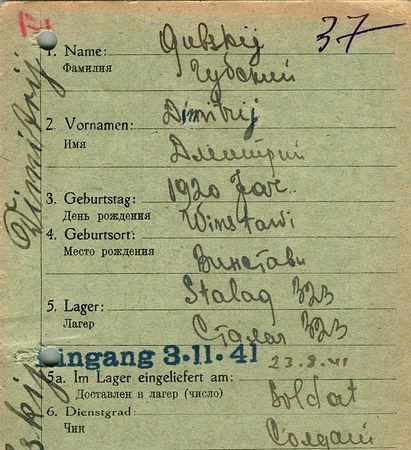 37
1. Name: Gubskij
Фамилия Губский
2. Vornamen: Dimitrij
Имя Дмитрий
3. Geburtstag: 1920 Jar..
День рождения
4. Geburtsort: Winstawi
Место рождения Винстави
5. Lager: Stalag 323
Лагер Сталаг 323
Eingang 3.11.41 23.8.41
5a. Im Lager eingeliefert am:
Доставлен в лагер (число)
6. Dienstgrad: Soldat
Чин Солдат
Dimitrij